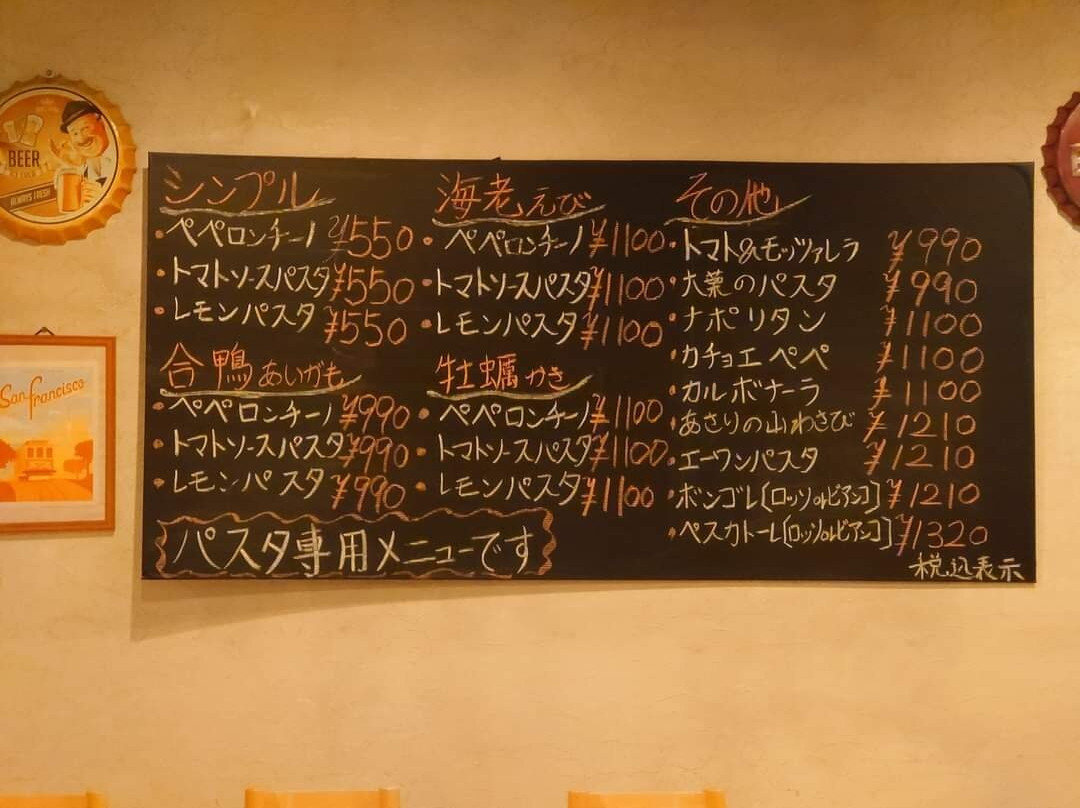 BEER
ALWAYS FRESH
San Francisco
シンプル
・ペペロンチーノ ¥550
・トマトソースパスタ ¥550
・レモンパスタ ¥550
合鴨 あいがも
・ペペロンチーノ ¥990
・トマトソースパスタ ¥990
・レモンパスタ ¥990
海老 えび
・ペペロンチーノ ¥1100
・トマトソースパスタ ¥1100
・レモンパスタ ¥1100
牡蠣 かき
・ペペロンチーノ ¥1100
・トマトソースパスタ ¥1100
・レモンパスタ ¥1100
その他
・トマト&モッツァレラ ¥990
・大葉のパスタ ¥990
・ナポリタン ¥1100
・カチョエペペ ¥1100
・カルボナーラ ¥1100
・あさりの山わさび ¥1210
・エーワンパスタ ¥1210
・ボンゴレ[ロッソorビアンコ] ¥1210
・ペスカトーレ[ロッソorビアンコ] ¥1320
税込表示
パスタ専用メニューです